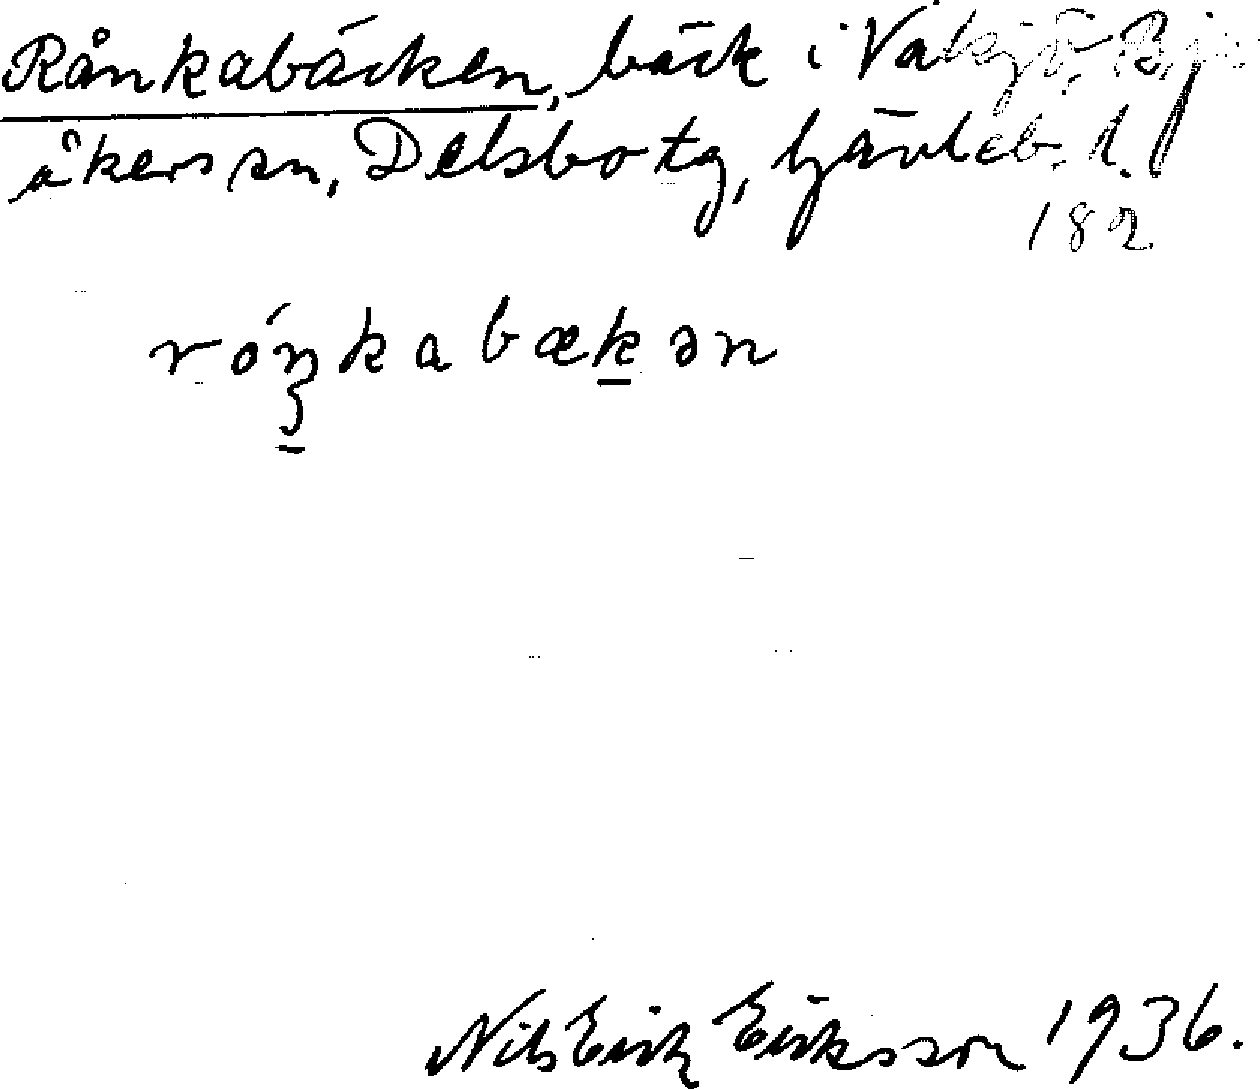 Rånkabäcken, bäck i Valsjö, Bjur-
åkers sn, Delsbo tg, Gävleb. l.
182
róŋkabækən
Nils Erik Eriksson 1936.